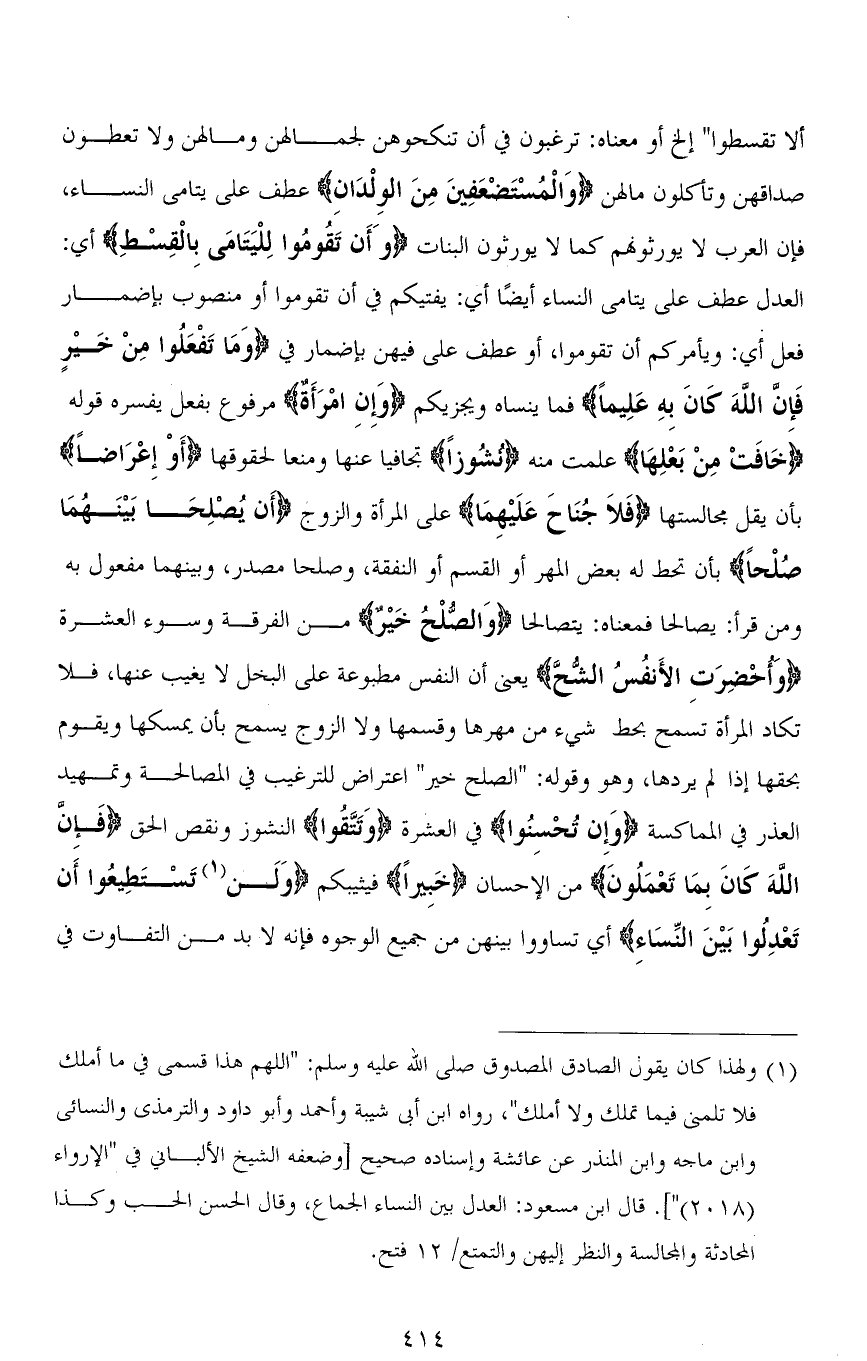 ألا تقسطوا" إلخ أو معناه: ترغبون في أن تنكحوهن لجمالهن ومالهن ولا تعطون
صداقهن وتأكلون مالهن ﴿وَالْمُسْتَضْعَفِينَ مِنَ الوِلْدَانِ﴾ عطف على يتامى النساء،
فإن العرب لا يورثونهم كما لا يورثون البنات ﴿وَأَن تَقُومُوا لِلْيَتَامَى بِالْقِسْطِ﴾ أي:
العدل عطف على يتامى النساء أيضًا أي: يفتيكم في أن تقوموا أو منصوب بإضمار
فعل أي: ويأمركم أن تقوموا، أو عطف على فيهن بإضمار في ﴿وَمَا تَفْعَلُوا مِنْ خَيْرٍ
فَإِنَّ اللَّهَ كَانَ بِهِ عَلِيماً﴾ فما ينساه ويجزيكم ﴿وَإِنِ امْرَأَةٌ﴾ مرفوع بفعل يفسره قوله
﴿خَافَتْ مِنْ بَعْلِهَا﴾ علمت منه ﴿نُشُوزاً﴾ تجافيا عنها ومنعا لحقوقها ﴿أَوْ إِعْرَاضاً﴾
بأن يقل مجالستها ﴿فَلاَ جُنَاحَ عَلَيْهِمَا﴾ على المرأة والزوج ﴿أَن يُصْلِحَا بَيْنَهُمَا
صُلْحاً﴾ بأن تحط له بعض المهر أو القسم أو النفقة، وصلحا مصدر، وبينهما مفعول به
ومن قرأ: يصالحا فمعناه: يتصالحا ﴿وَالصُّلْحُ خَيْرٌ﴾ من الفرقة وسوء العشرة
﴿وَأُحْضِرَتِ الأَنفُسُ الشُّحَّ﴾ يعني أن النفس مطبوعة على البخل لا يغيب عنها، فلا
تكاد المرأة تسمح بحط شيء من مهرها وقسمها ولا الزوج يسمح بأن يمسكها ويقوم
بحقها إذا لم يردها، وهو وقوله: "الصلح خير" اعتراض للترغيب في المصالحة وتمهيد
العذر في المماكسة ﴿وَإِن تُحْسِنُوا﴾ في العشرة ﴿وَتَتَّقُوا﴾ النشوز ونقص الحق ﴿فَإِنَّ
اللَّهَ كَانَ بِمَا تَعْمَلُونَ﴾ من الإحسان ﴿خَبِيراً﴾ فيثيبكم ﴿وَلَن(١) تَسْتَطِيعُوا أَن
تَعْدِلُوا بَيْنَ النِّسَاءِ﴾ أي تساووا بينهن من جميع الوجوه فإنه لا بد من التفاوت في
(١) ولهذا كان يقول الصادق المصدوق صلى الله عليه وسلم: "اللهم هذا قسمى في ما أملك
فلا تلمنى فيما تملك ولا أملك"، رواه ابن أبى شيبة وأحمد وأبو داود والترمذى والنسائى
وابن ماجه وابن المنذر عن عائشة وإسناده صحيح [وضعفه الشيخ الألباني في "الإرواء
(٢٠١٨)"]. قال ابن مسعود: العدل بين النساء الجماع، وقال الحسن الحب وكذا
المحادثة والمجالسة والنظر إليهن والتمتع/ ١٢ فتح.
٤١٤